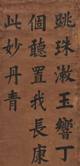 跳珠漱玉響丁
個聽置我長康
此妙丹青